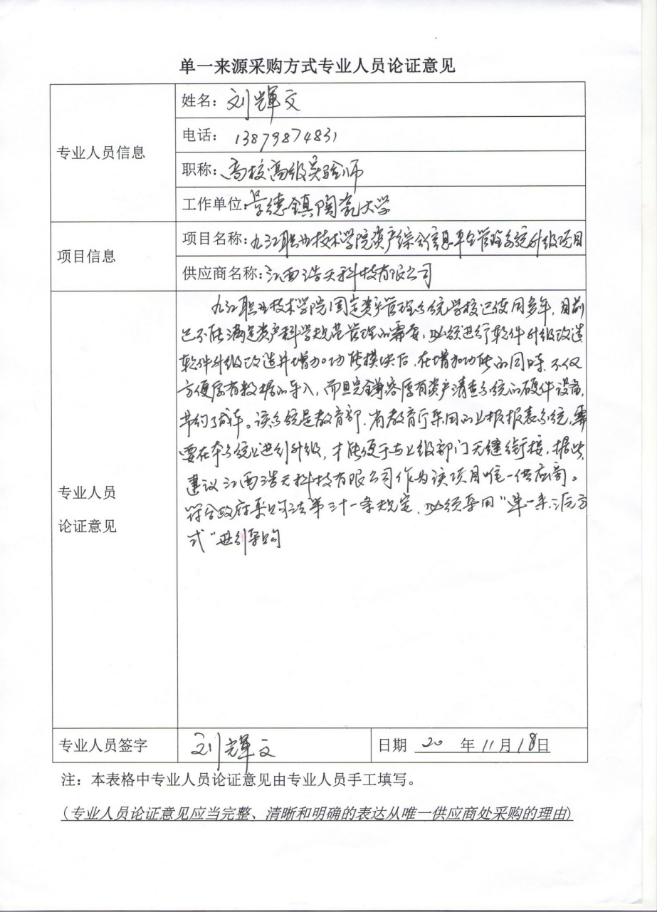 单一来源采购方式专业人员论证意见
专业人员信息
姓名：刘輝文
电话：13879874831
职称：高校高级实验师
工作单位：景德鎮陶瓷大学
项目信息
项目名称：九江职业技术学院资产综合信息平台管理系统升级项目
供应商名称：江西浩天科技有限公司
专业人员
论证意见
九江职业技术学院固定资产管理系统学校已使用多年，目前
已不能满足资产科学规范管理的需要，必须进行软件升级改造
软件升级改造并增加功能模块后，在增加功能的同时，不仅
方便原有数据的导入，而且完全兼容原有资产清查系统的硬件设备，
节约了成本。该系统是教育部、省教育厅采用的上报报表系统，需
要在本系统上进行升级，才能便于与上级部门无缝衔接，据此
建议江西浩天科技有限公司作为该项目唯一供应商。
符合政府采购法第三十一条规定，必须采用“单一来源方
式”进行采购
专业人员签字
刘輝文
日期 20 年11月18日
注：本表格中专业人员论证意见由专业人员手工填写。
（专业人员论证意见应当完整、清晰和明确的表达从唯一供应商处采购的理由）